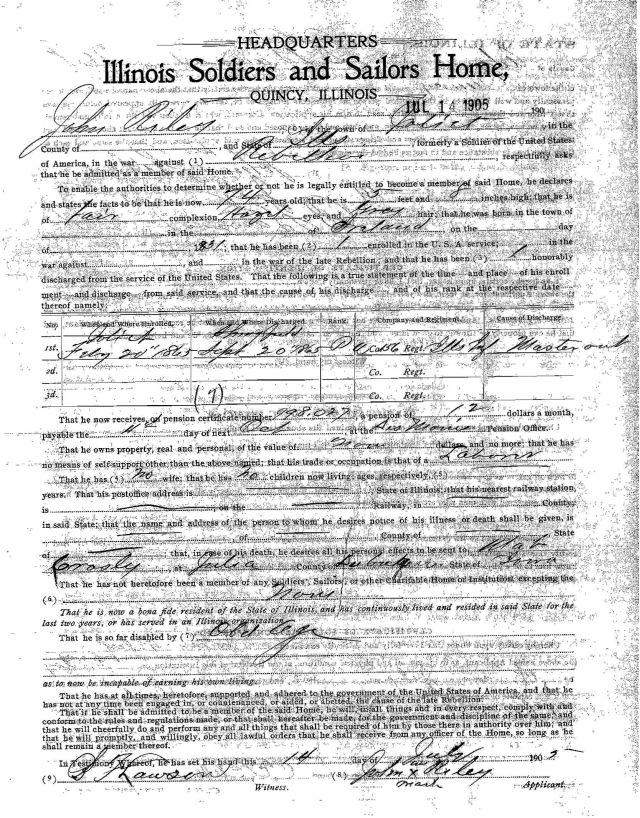 HEADQUARTERS
Illinois Soldiers and Sailors Home,
QUINCY, ILLINOIS
JUL 14 1905 190
John Riley (0) of the town of Joliet in the
County of and State of Ills formerly a Soldier of the United States
of America, in the war against (1) Rebellion respectfully asks
that he be admitted as a member of said Home.
To enable the authorities to determine whether or not he is legally entitled to become a member of said Home, he declares
and states the facts to be that he is now 74 years old; that he is 5 feet and 8 inches high; that he is
of Fair complexion, Hazel eyes, and Gray hair; that he was born in the town of
in the of Ireland on the day
of 1831; that he has been (2) 1 enrolled in the U. S. A service; in the
war against and in the war of the late Rebellion; and that he has been (3) 1 honorably
discharged from the service of the United States. That the following is a true statement of the time and place of his enroll
ment and discharge from said service, and that the cause of his discharge and of his rank at the respective date
thereof namely:
No. When and Where Enrolled. When and Where Discharged Rank. Company and Regiment. Cause of Discharge
Joliet Springfield
1st. Feby 20" 1865 Sept 20" 1865 P A Co. 156 Regt. Ills Inf Muster out
2d. Co. Regt.
3d. Co. Regt.
That he now receives, on pension certificate number 998.027, a pension of 12 dollars a month,
payable the 4" day of next Oct at the Des Moines Pension Office.
That he owns property, real and personal, of the value of None dollars, and no more; that he has
no means of self-support other than the above named; that his trade or occupation is that of a Laborer
That he has (5) no wife; that he has no children now living; ages, respectively, (5)
years. That his postoffice address is State of Illinois; that his nearest railway station,
is on the Railway, in County,
in said State; that the name and address of the person to whom he desires notice of his illness or death shall be given, is
of County of State
of that, in case of his death, he desires all his personal effects to be sent to
Crosly, at Julia County of Dubuque State of Iowa
That he has not heretofore been a member of any Soldiers', Sailors', or other Charitable Home or Institution, excepting the
(6) None
That he is now a bona fide resident of the State of Illinois, and has continuously lived and resided in said State for the
last two years, or has served in an Illinois organization.
That he is so far disabled by (7) Old Age
as to now be incapable of earning his own living.
That he has at all times, heretofore, supported and adhered to the government of the United States of America, and that he
has not at any time been engaged in, or countenanced, or aided, or abetted, the cause of the late Rebellion.
That if he shall be admitted to be a member of the said Home, he will, in all things and in every respect, comply with and
conform to the rules and regulations made, or that shall hereafter be made, for the government and discipline of the same; and
that he will cheerfully do and perform any and all things that shall be required of him by those there in authority over him; and
that he will promptly, and willingly, obey all lawful orders that he shall receive from any officer of the Home, so long as he
shall remain a member thereof.
In Testimony Whereof, he has set his hand this 14 day of July 1905
(9) S Lawson (8) John x Riley
mark
Witness. Applicant.